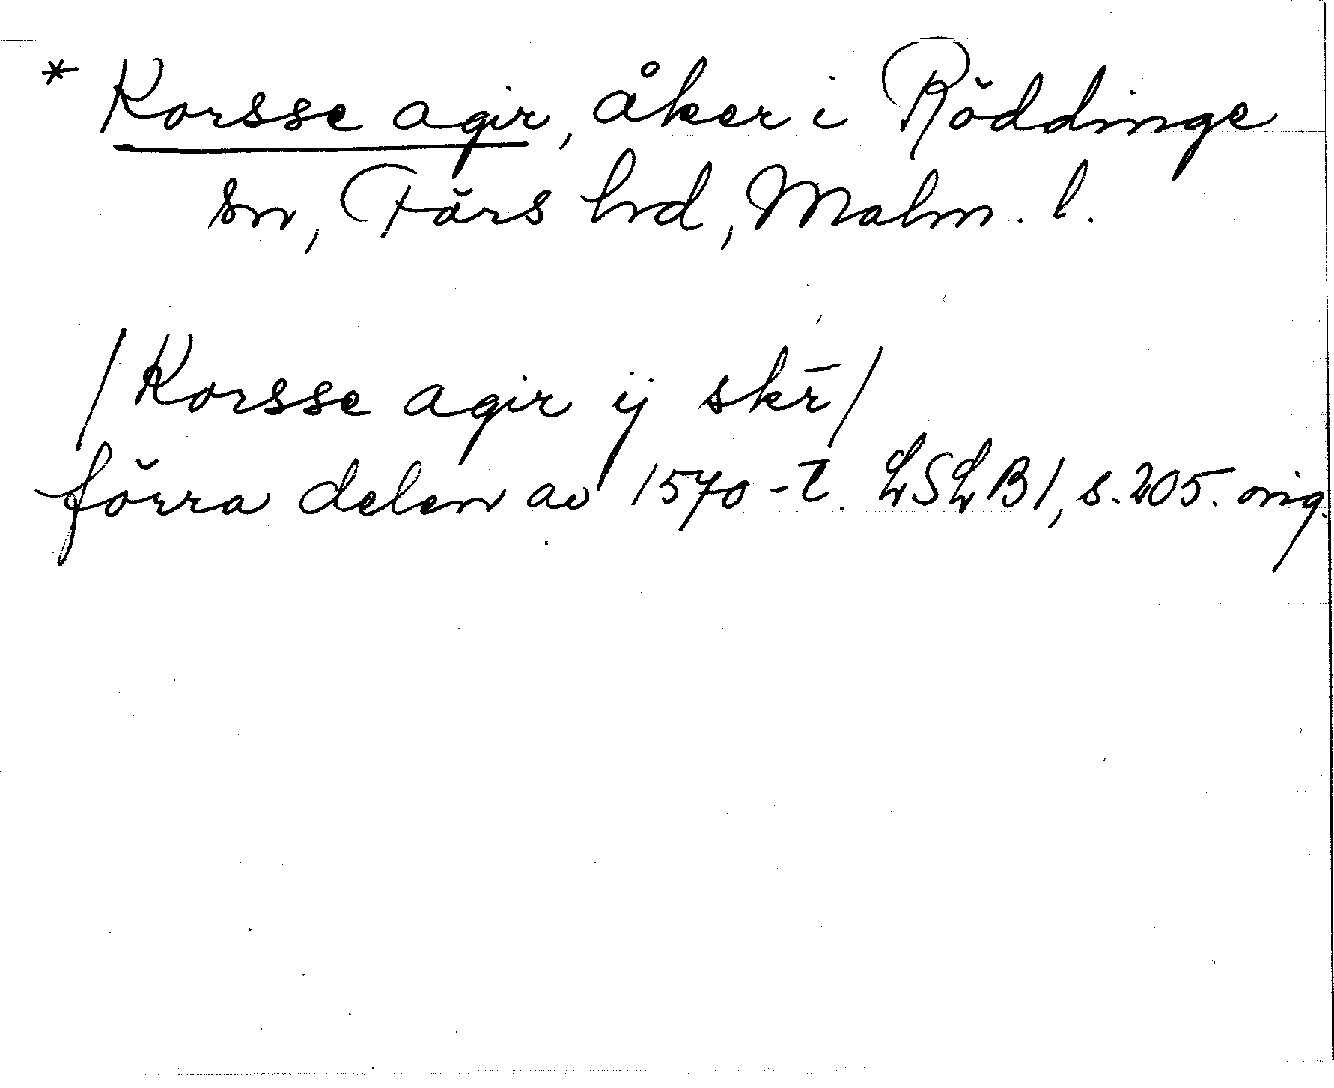 * Korsse agir, åker i Röddinge
sn, Färs hd, Malm. l.
/Korsse agir ij skr̄/
förra delen av 1570-t. LSLB1, s. 205. orig.